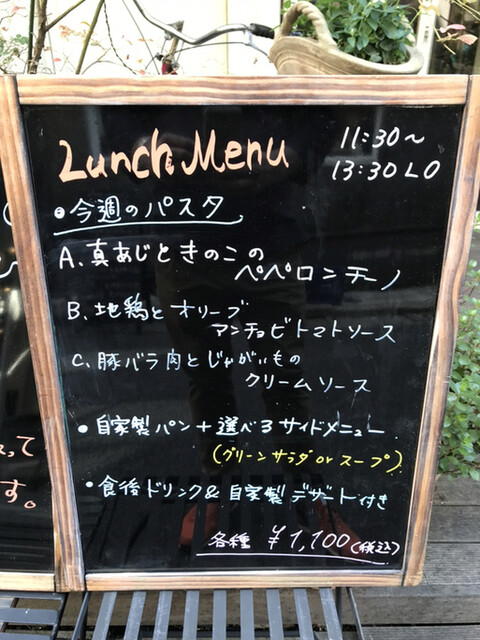 Lunch Menu
11:30〜
13:30 LO
• 今週のパスタ
A、真あじときのこの
ペペロンチーノ
B、地鶏とオリーブ
アンチョビトマトソース
C、豚バラ肉とじゃがいもの
クリームソース
• 自家製パン+選べるサイドメニュー
(グリーンサラダorスープ)
• 食後ドリンク&自家製デザート付き
各種 ¥1,100(税込)
って
す。